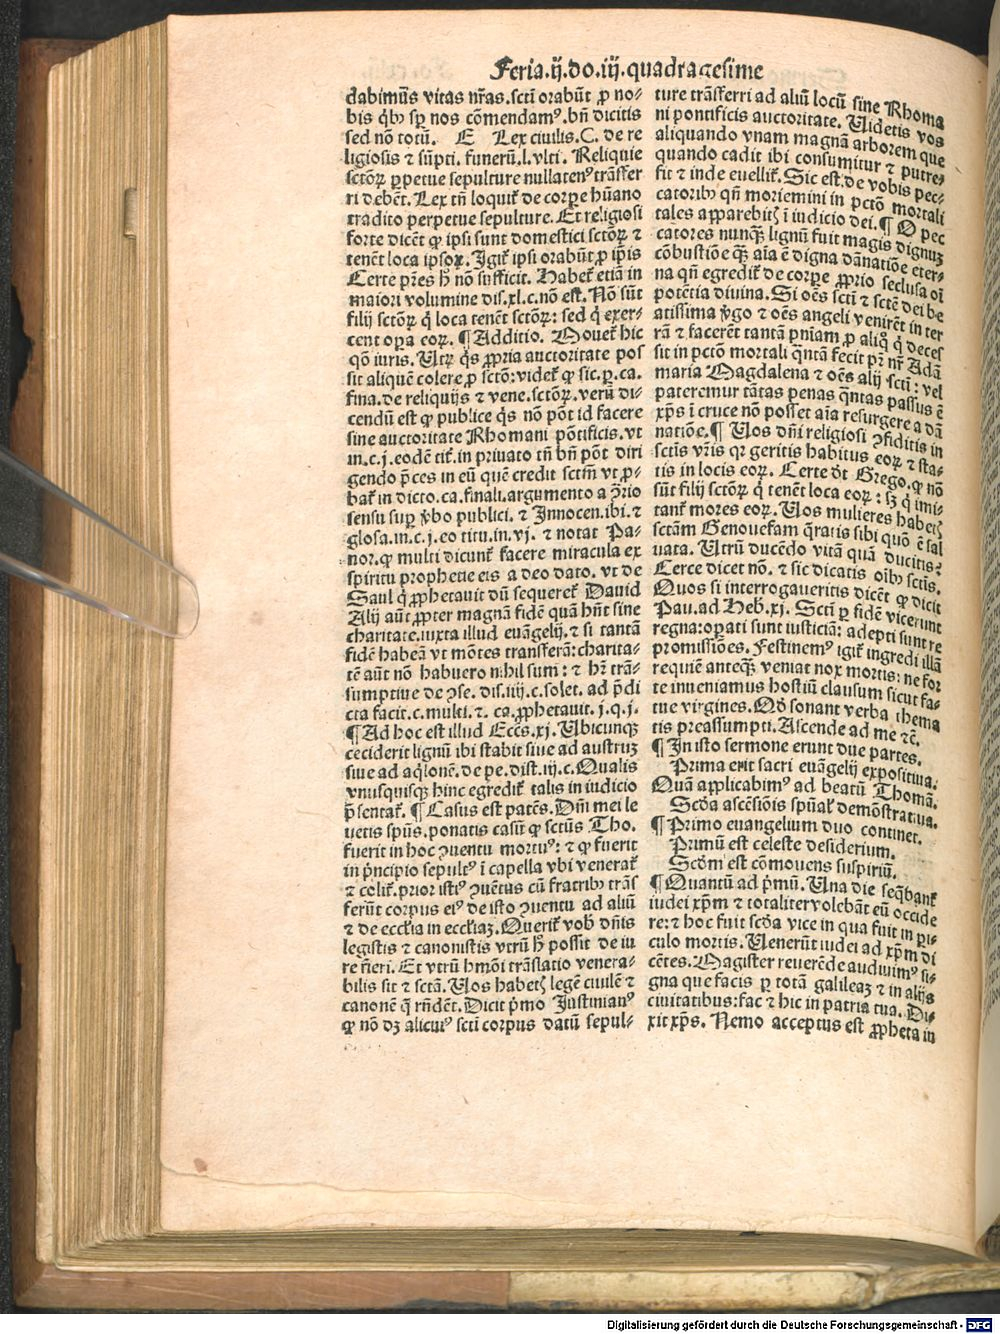 Feria.ij.do.iij.quadragesime
dabimus vitas nr̃as.scti orabũt ꝓ no-
bis q̈bꝰ sꝑ nos cõmendamꝰ.bñ dicitis
sed nõ totũ. E Lex ciuilis.C. de re
ligiosis ⁊ sũpti. funerũ.l.vlti. Reliquie
sctõꝝ ꝑpetue sepulture nullatenꝰ trãsfer
ri debẽt. Lex tñ loquit̃ de corꝑe hũano
tradito perpetue sepulture. Et religiosi
forte dicẽt ꝙ ipsi sunt domestici sctõꝝ ⁊
tenẽt loca ipsoꝝ. Igit̃ ipsi orabũt ꝓ ip̃is
Certe pr̃es hͦ nõ sufficit. Habet̃ etiã in
maiori volumine dis.xl.c.nõ est. Nõ sũt
filij sctõꝝ q̇ loca tenẽt sctõꝝ: sed q̇ exer-
cent oꝑa eoꝝ. ¶ Additio. Mouet̃ hic
qõ iuris. Utꝝ q̇s ꝓpria auctoritate pos
sit aliquẽ colere ꝓ sctõ: videt̃ ꝙ sic.ꝑ.ca.
fina.de reliquijs ⁊ vene.sctõꝝ. verũ di-
cendũ est ꝙ publice q̇s nõ põt id facere
sine auctoritate Rhomani põtificis.vt
in.c.j.eodẽ tit̃.in priuato tñ bñ põt diri
gendo p̃ces in eũ quẽ credit sctm̃ vt ꝓ-
bat̃ in dicto.ca.finali.argumento a ꝯrio
sensu suꝑ v̓bo publici. ⁊ Innocen.ibi.⁊
glosa.in.c.j.eo titu.in.vj. ⁊ notat Pa-
nor.ꝙ multi dicunt̃ facere miracula ex
spiritu prophetie eis a deo dato. vt de
Saul q̇ ꝓphetauit dũ sequeret̃ Dauid
Alij aũt ꝓpter magnã fidẽ quã hñt sine
charitate.iuxta illud euãgelij.⁊ si tantã
fidẽ habeã vt mõtes transferã: charita-
tẽ aũt nõ habuero nihil sum: ⁊ hr̃ trã-
sumptiue de ꝯse. dis.iiij.c.solet. ad p̃di
cta facit.c.multi.⁊. ca.ꝓphetauit.j.q.j.
¶ Ad hoc est illud Eccs̃.xj. Ubicunqꝫ
ceciderit lignũ ibi stabit siue ad austruꝫ
siue ad aq̇lonẽ.de pe.dist.iij.c.Qualis
vnusquisqꝫ hinc egredit̃ talis in iudicio
p̃sentat̃. ¶ Casus est patẽs. Dñi mei le
uetis spũs.ponatis casũ ꝙ sctũs Tho.
fuerit in hoc ꝯuentu mortuꝰ: ⁊ ꝙ fuerit
in p̓ncipio sepultꝰ ĩ capella vbi venerat̃
⁊ colit̃.prior istiꝰ ꝯuẽtus cũ fratribꝰ trãs
ferũt corpus eiꝰ de isto ꝯuentu ad aliũ
⁊ de ecclĩa in ecclĩaꝫ. Querit̃ vob̃ dñis
legistis ⁊ canonistis vtrũ hͦ possit de iu
re fieri. Et vtrũ hmõi trãslatio venera-
bilis sit ⁊ sctã. Uos habetꝭ legẽ ciuilẽ ⁊
canonẽ q̇ rñdẽt. Dicit p̓mo Justinianꝰ
ꝙ nõ dꝫ alicuiꝰ scti corpus datũ sepul-
ture trãsferri ad aliũ locũ sine Rhoma
ni pontificis auctoritate. Uidetis vos
aliquando vnam magnã arborem que
quando cadit ibi consumitur ⁊ putre-
fit ⁊ inde euellit̃. Sic est de vobis pec-
catoribꝰ qñ moriemini in pctõ mortali
tales apparebitꝭ ĩ iudicio dei. ¶ O pec
catores nunqꝫ lignũ fuit magis dignuꝫ
cõbustiõe qꝫ aĩa ẽ digna dãnatiõe eter-
na qñ egredit̃ de corꝑe ꝓprio seclusa oĩ
potẽtia diuina. Si oẽs scti ⁊ sctẽ dei be
atissima v̓go ⁊ oẽs angeli venirẽt in ter
rã ⁊ facerẽt tantã pñiam ꝓ aliq̊ q̇ deces
sit in pctõ mortali q̈ntã fecit pr̃ nr̃ Adã
maria Magdalena ⁊ oẽs alij scti: vel
pateremur tãtas penas q̈ntas passus ẽ
xp̃s ĩ cruce nõ posset aĩa resurgere a dã
natiõe. ¶ Uos dñi religiosi ꝯfiditis in
sctis vr̃is qꝛ geritis habitus eoꝝ ⁊ sta-
tis in locis eoꝝ. Certe dẽt Grego.ꝙ nõ
sũt filij sctõꝝ q̇ tenẽt loca eoꝝ: sꝫ q̇ imi-
tant̃ mores eoꝝ. Uos mulieres habetꝭ
sctãm Genouefam q̈ratis sibi quõ ẽ sal
uata. Utrũ ducẽdo vitã quã ducitis?
Certe dicet nõ. ⁊ sic dicatis oĩbꝰ sctis.
Quos si interrogaueritis dicẽt ꝙ dicit
Pau.ad Heb̃.xj. Scti ꝑ fidẽ vicerunt
regna: oꝑati sunt iusticiã: adepti sunt re
promissiões. Festinemꝰ igit̃ ingredi illã
requiẽ anteqꝫ veniat nox mortis: ne for
te inueniamus hostiũ clausum sicut fa-
tue virgines. Qđ sonant verba thema
tis preassumpti. Ascende ad me ⁊c̃.
¶ In isto sermone erunt due partes.
Prima erit sacri euãgelij expositiua.
Quã applicabimꝰ ad beatũ Thomã.
Scđa ascẽsiõis spũal̃ demõstratiua.
¶ Primo euangelium duo continet.
Primũ est celeste desiderium.
Scđm est cõmouens suspiriũ.
¶ Quantũ ad p̓mũ. Una die seq̃bant̃
iudei xp̃m ⁊ totaliter volebãt eũ occide
re: ⁊ hoc fuit scđa vice in qua fuit in ꝑi-
culo mortis. Uenerũt iudei ad xp̃m di
cẽtes. Magister reuerẽde audiuimꝰ si-
gna que facis ꝑ totã galileaꝫ ⁊ in alijs
ciuitatibus: fac ⁊ hic in patria tua. Di-
xit xp̃s. Nemo acceptus est ꝓpheta in
Digitalisierung gefördert durch die Deutsche Forschungsgemeinschaft - DFG